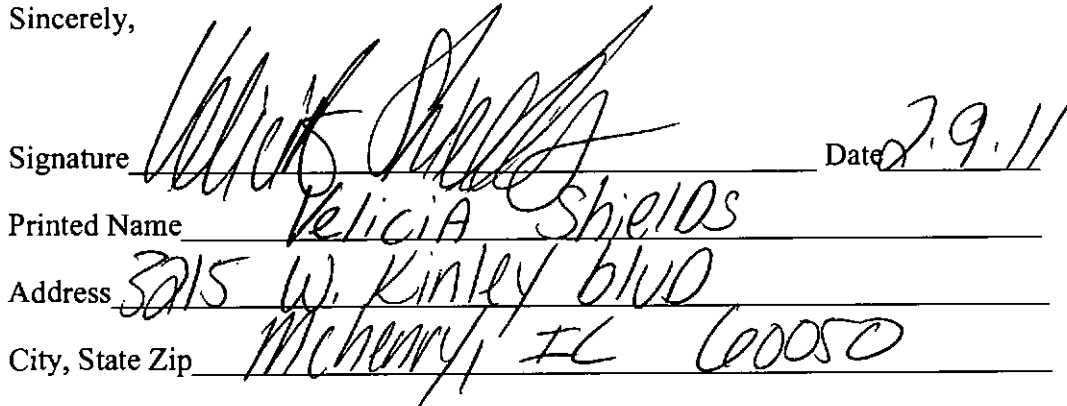 Sincerely,
Signature Velicia Shields Date 2.9.11
Printed Name VeliciA ShielDs
Address 3215 W. Kinley blvD
City, State Zip Mchenry, IL 60050